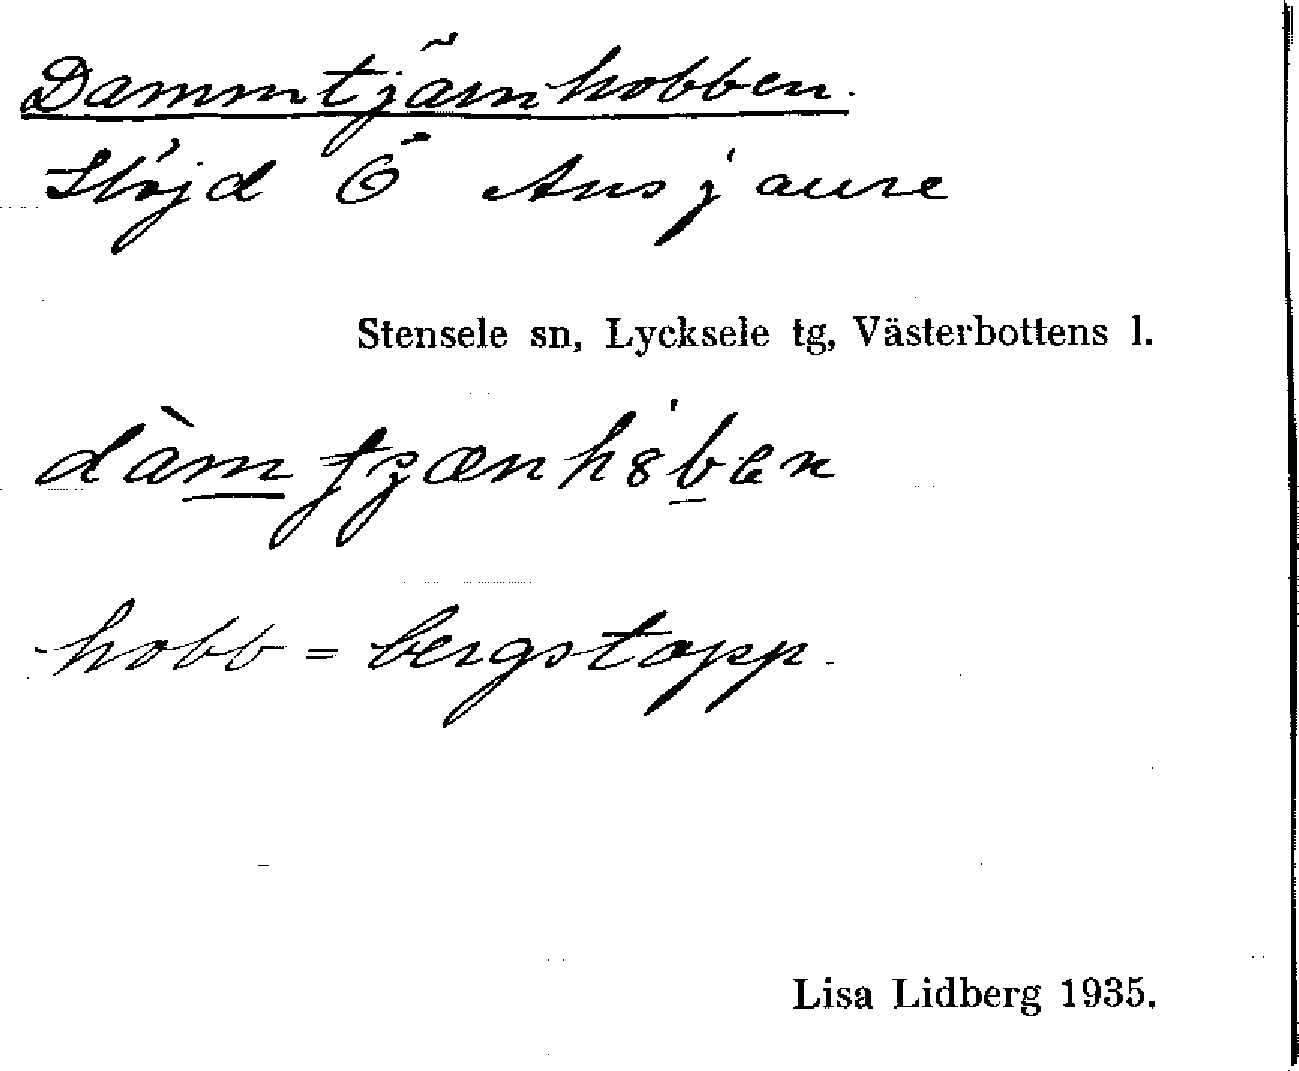 Dammtjärnhobben.
Höjd Ö Ansjaure
Stensele sn, Lycksele tg, Västerbottens l.
hobb = bergstopp.
Lisa Lidberg 1935.